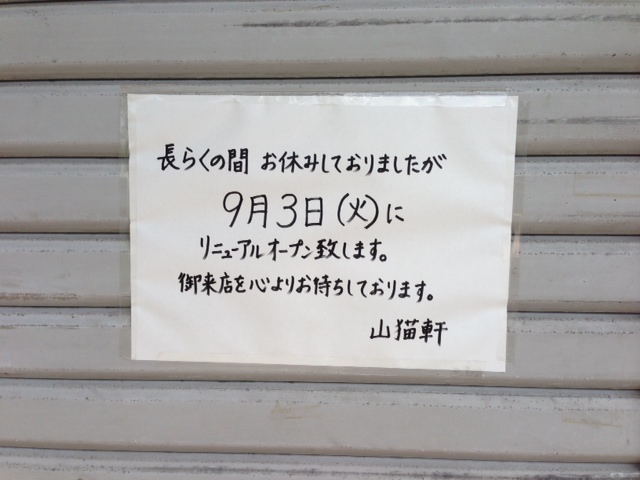 長らくの間 お休みしておりましたが
9月3日(火)に
リニューアルオープン致します。
御来店を心よりお待ちしております。
山猫軒